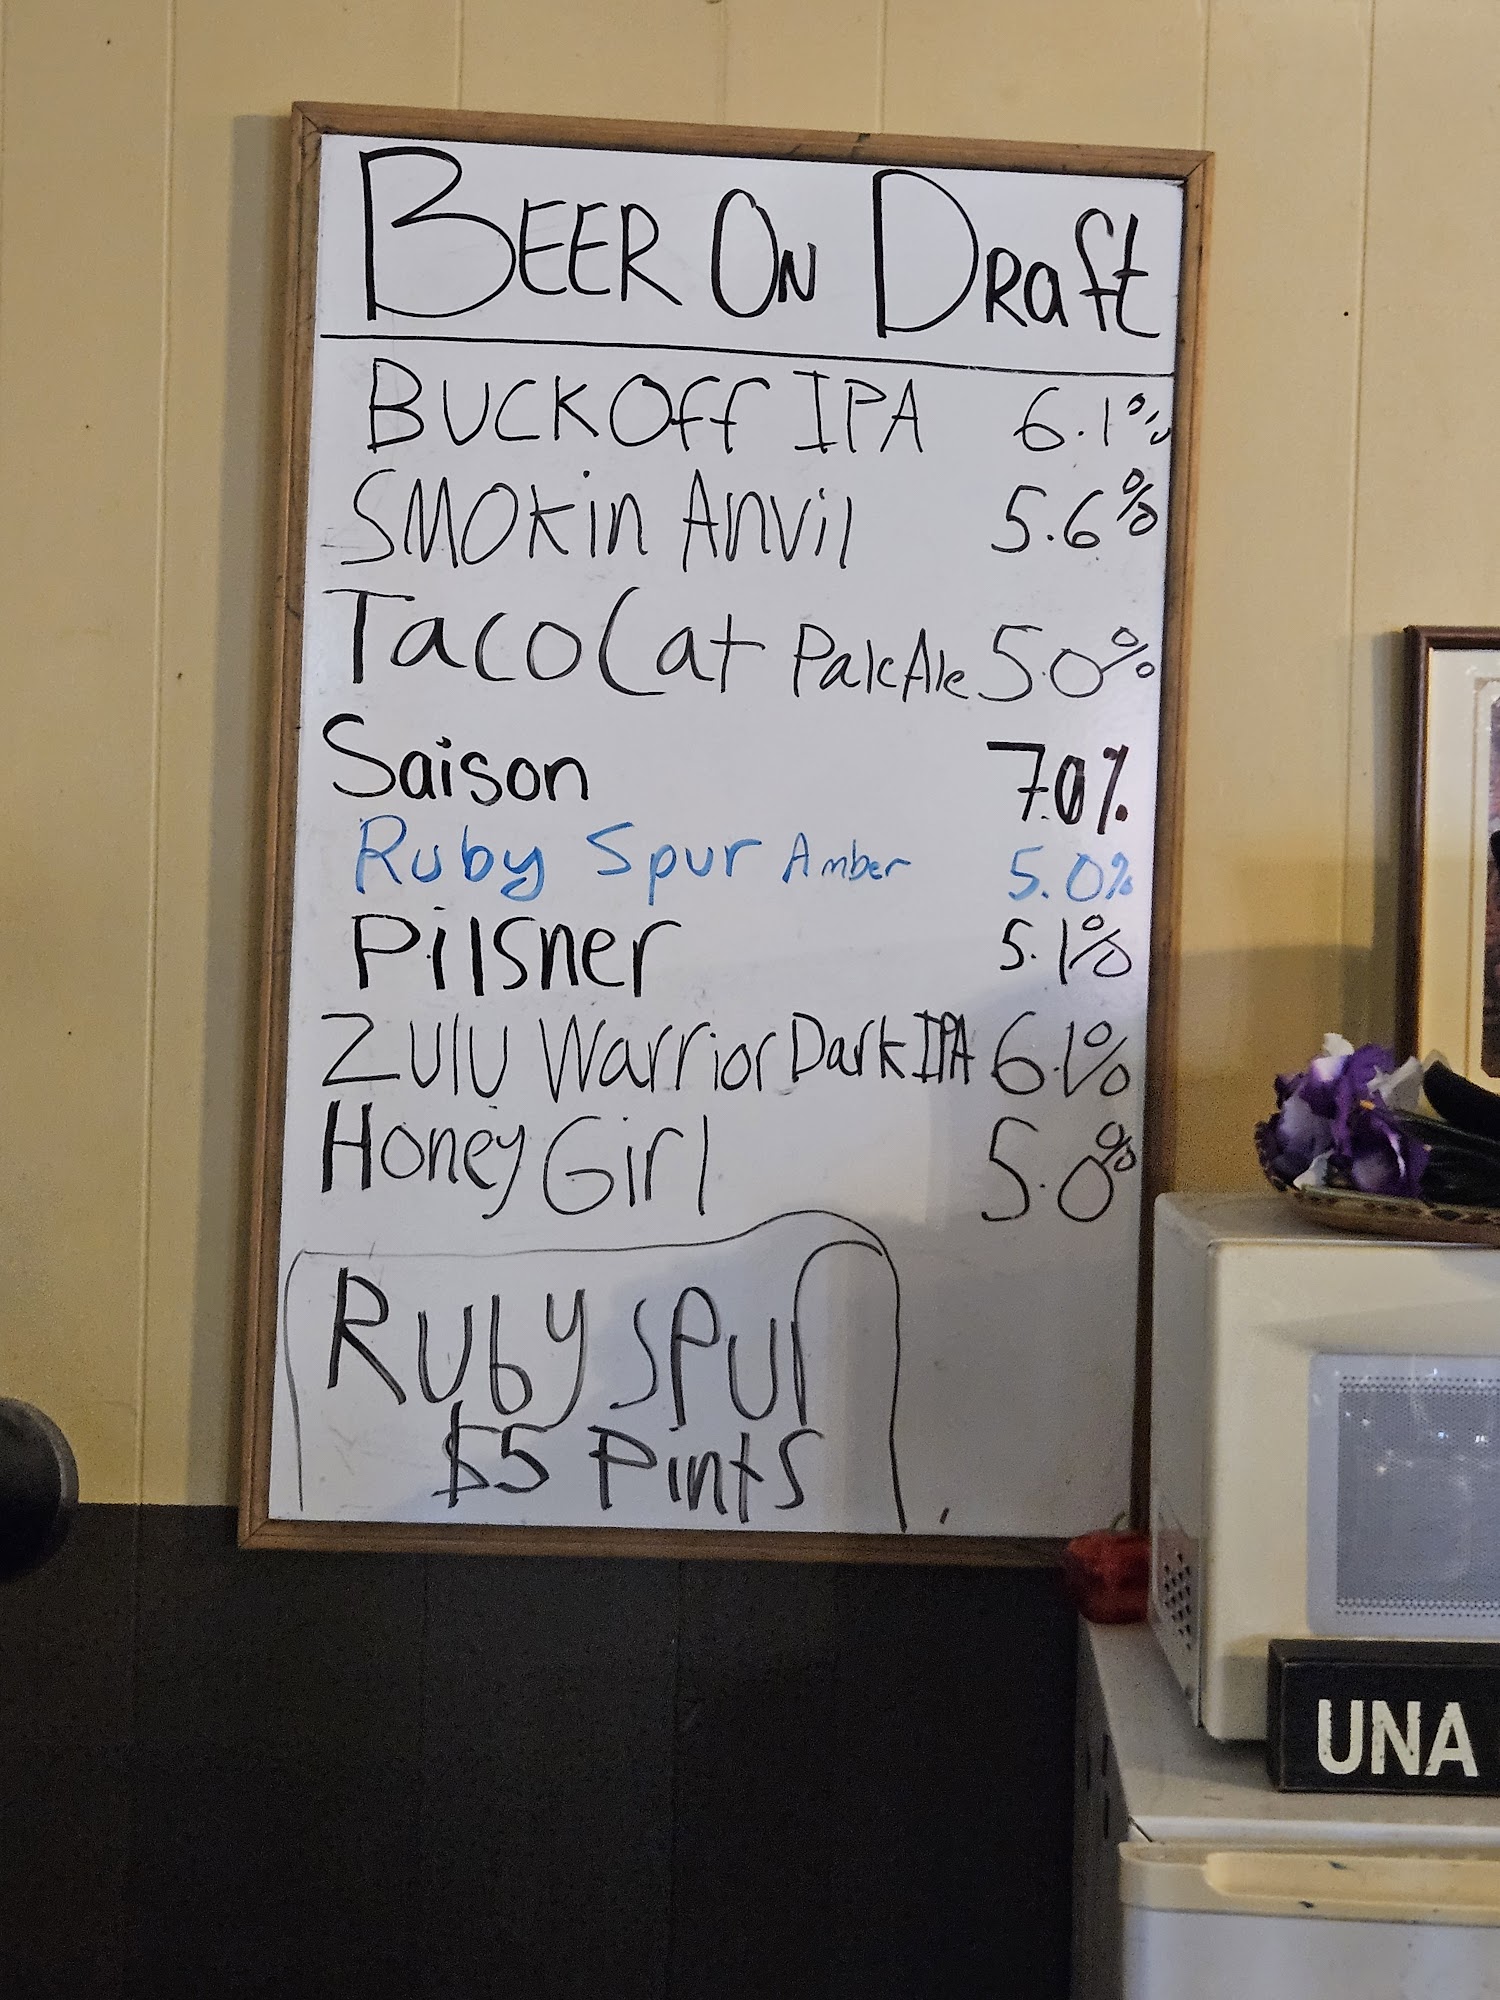 BEER ON DRaft
BUCKOff IPA 6.1%
SMOKin Anvil 5.6%
TacoCat PaleAle 5.0%
Saison 7.0%
Ruby Spur Amber 5.0%
Pilsner 5.1%
Zulu Warrior Dark IPA 6.1%
Honey Girl 5.0%
Ruby Spur
$5 Pints
UNA